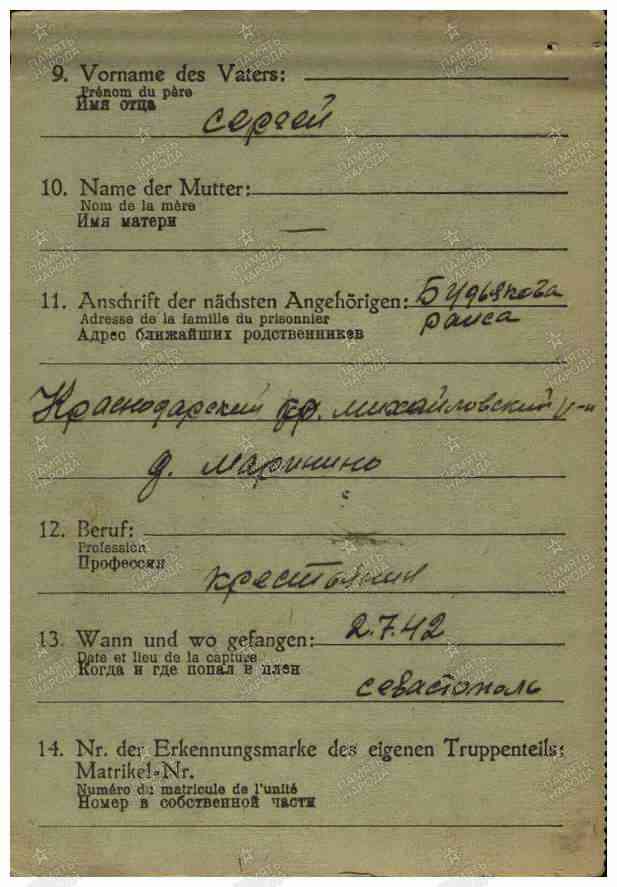 9. Vorname des Vaters:
Prénom du père
Имя отца
Сергей
10. Name der Mutter:
Nom de la mère
Имя матери
—
11. Anschrift der nächsten Angehörigen: Будьякова
Adresse de la famille du prisonnier
раиса
Адрес ближайших родственников
Краснодарский кр. михайловский р-н
д. Маринино
12. Beruf:
Profession
Профессия
крестьянин
13. Wann und wo gefangen: 2.7.42
Date et lieu de la capture
Когда и где попал в плен
севастополь
14. Nr. der Erkennungsmarke des eigenen Truppenteils:
Matrikel-Nr.
Numéro du matricule de l'unité
Номер в собственной части
ПАМЯТЬ НАРОДА